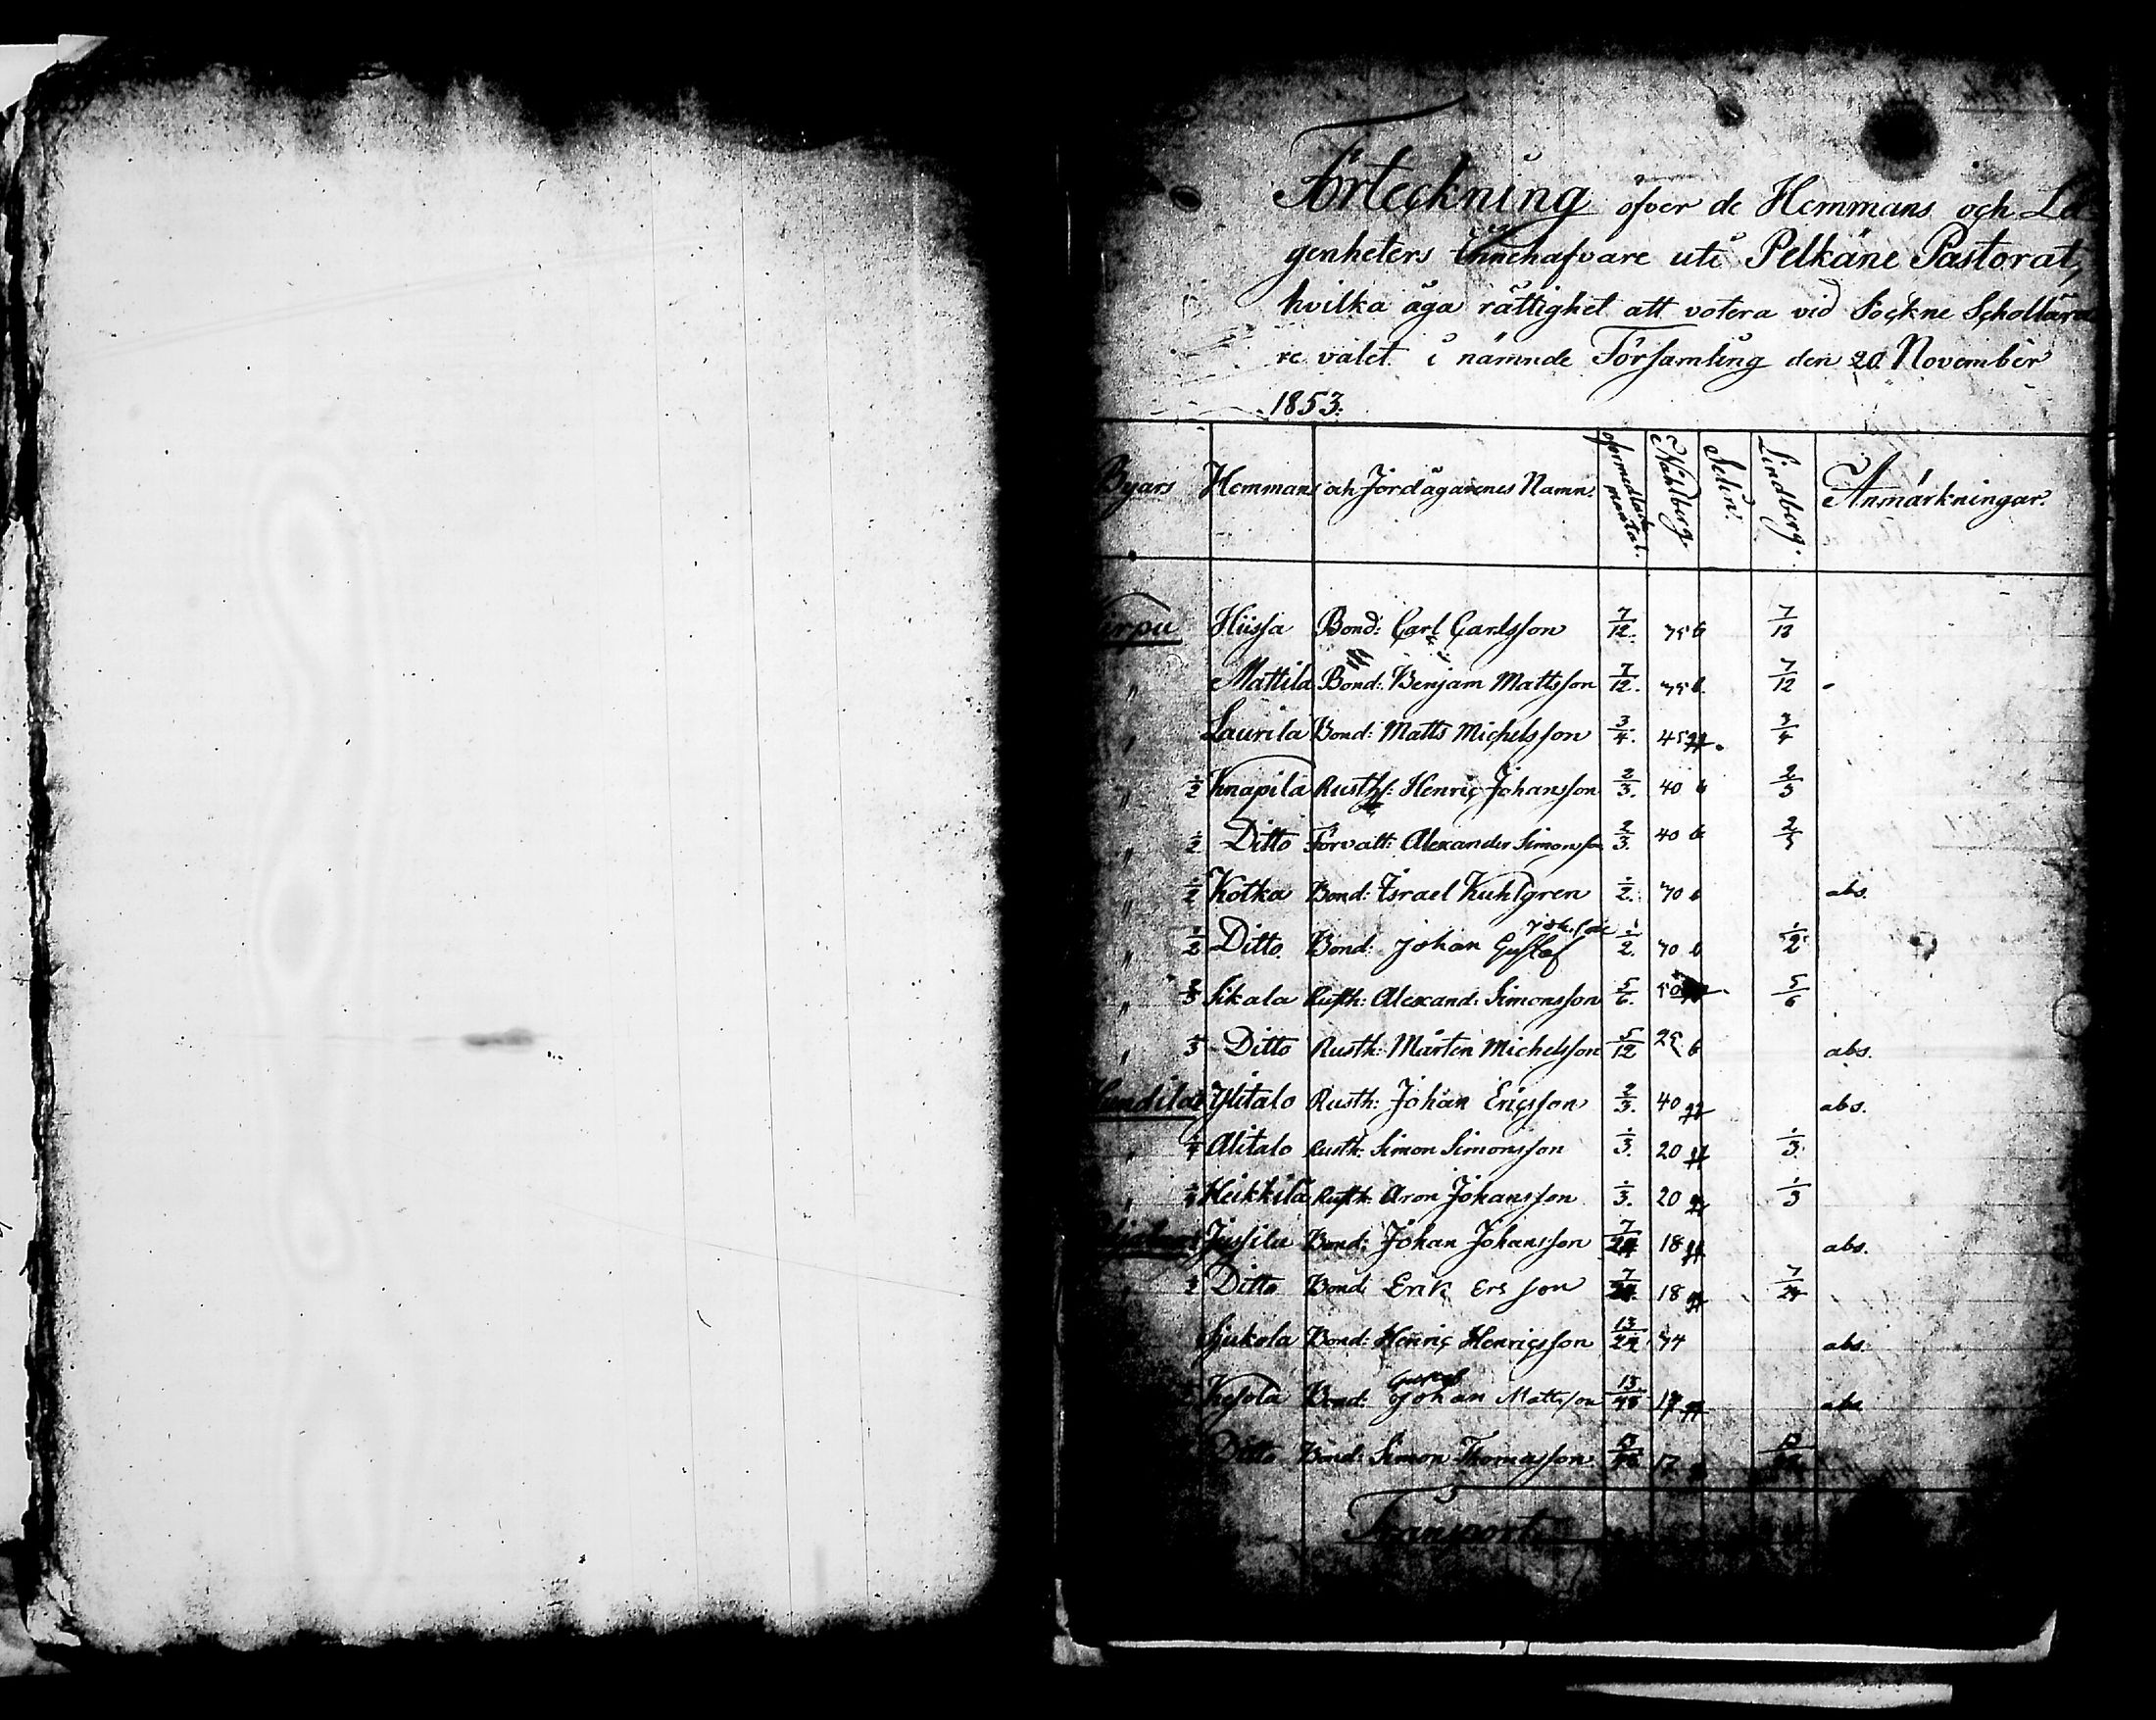 Förteckning öfver de Hemmans och Lä-
genheters Innehafvare uti Pelkäne Pastorat,
hvilka äga rättighet att votera vid Sockne Schollära
re valet i nämnde Församling den 20 November
1853.
Byars Hemmans och Jordägarenes Namn. oförmedlade mantal. Kahlberg. Selin. Lindberg. Anmärkningar.
Hiissa Bond: Carl Carlsson 7/12. 35 7/12
" Mattila Bond: Benjam Mattsson 7/12. 35 7/12 -
" Laurila Bond: Matts Michelsson 3/4. 45 3/4
" 1/2 Knapila Rusth: Henric Johansson 2/3. 40 2/3
" 1/2 Ditto Förvalt: Alexander Simonsson 2/3. 40 2/3
" 1/2 Kotka Bond: Israel Kuhlgren 1/2. 30 abs.
" 1/2 Ditto Bond: Johan Gustaf Joh.son 1/2. 30 1/2
" 2/3 Sikala Rusth: Alexand: Simonsson 5/6. 50 5/6
" Ditto Rusth: Mårten Michelsson 5/12 25 abs.
Ylitalo Rusth: Johan Ericsson 2/3. 40 abs.
" Alitalo Rusth: Simon Simonsson 1/3. 20 1/3.
" Heikkilä Rusth: Aron Johansson 1/3. 20 1/3
Jussila Bond: Johan Johansson 7/24 18 abs.
1/2 Ditto Bond: Erik Ersson 7/24. 18 7/24
Sjukola Bond: Henric Henricsson 13/24 34 abs.
Kesola Bond: Johan Mattsson 13/48 17 abs
Ditto Bond: Simon Thomasson 17
Transport